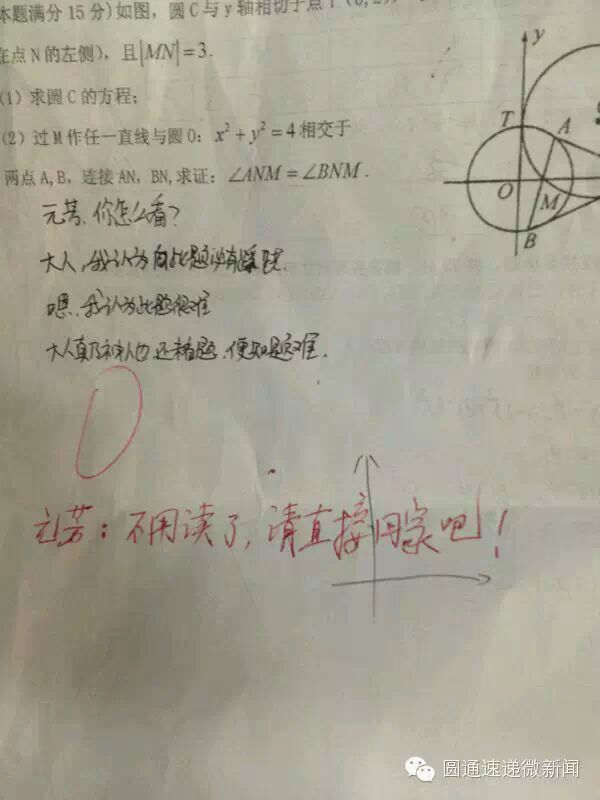 本题满分 15 分)如图，圆 C 与 y 轴相切于点 T (0, 2)，
在点 N 的左侧)，且|MN|=3.
(1) 求圆 C 的方程；
(2) 过 M 作任一直线与圆 O：x²+y²=4 相交于
两点 A, B，连接 AN，BN, 求证：∠ANM=∠BNM．
y
T
A
O
M
B
元芳，你怎么看？
大人，我认为此题没有
嗯，我认为此题很难
大人真乃神人也，还看题，便知题难．
0
元芳：不用读了，请直接回家吧！
圆通速递微新闻